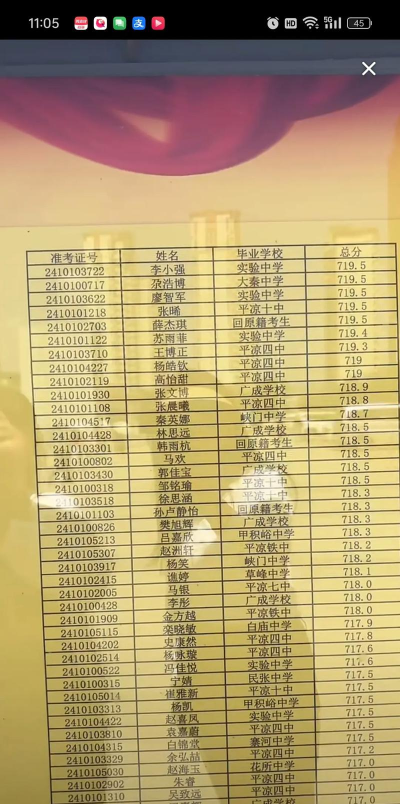 11:05
HD
5G
45
准考证号 姓名 毕业学校 总分
2410103722 李小强 实验中学 719.5
2410100717 尕浩博 大秦中学 719.5
2410103622 廖智军 实验中学 719.5
2410101218 张晞 平凉十中 719.5
2410102703 薛杰琪 回原籍考生 719.5
2410101122 苏雨菲 实验中学 719.4
2410103710 王博正 平凉四中 719.3
2410104227 杨皓钦 平凉四中 719
2410102119 高怡甜 平凉四中 719
2410101930 张文博 广成学校 718.9
2410101108 张晨曦 平凉四中 718.8
2410104517 秦英娜 峡门中学 718.7
2410104428 林思远 广成学校 718.5
2410103301 韩雨杭 回原籍考生 718.5
2410100802 马欢 平凉四中 718.5
2410103430 郭佳宝 广成学校 718.5
2410100318 邹铭瑜 平凉十中 718.5
2410103518 徐思涵 平凉十中 718.3
2410101103 孙卢静怡 回原籍考生 718.3
2410100826 樊旭辉 广成学校 718.3
2410105213 吕嘉欣 甲积峪中学 718.3
2410105307 赵洲轩 平凉铁中 718.2
2410103917 杨笑 峡门中学 718.2
2410102415 谯婷 草峰中学 718.1
2410102005 马银 平凉七中 718.0
2410100428 李彤 广成学校 718.0
2410101909 金方越 平凉铁中 718.0
2410105115 栾晓敏 白庙中学 717.9
2410104202 史康然 平凉四中 717.8
2410102514 杨咏璇 平凉四中 717.6
2410100522 冯佳悦 实验中学 717.6
2410100315 宁婧 民张中学 717.5
2410105014 崔雅新 平凉十中 717.5
2410103313 杨凯 甲积峪中学 717.5
2410104422 赵喜凤 实验中学 717.5
2410103810 袁嘉蔚 平凉四中 717.5
2410104315 白锦堂 寨河中学 717.5
2410103329 余弘喆 平凉四中 717.2
2410105030 赵海玉 花所中学 717.0
2410102902 朱睿 平凉四中 717.0
2410101310 吴致远 平凉四中 717.0
广成学校